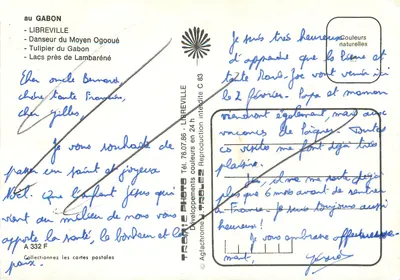 au GABON
- LIBREVILLE
- Danseur du Moyen Ogooué
- Tulipier du Gabon
- Lacs près de Lambaréné
Cher oncle Bernard,
chère tante Francine,
cher Gilles,
Je vous souhaite de
passer un saint et joyeux
Noël. Que l'enfant Jésus qui
vient au milieu de nous vous
apporte la santé, le bonheur et la
paix.
A 332 F
Collectionnez les cartes postales
TROPIC PHOTO Tél. 76.07.86 - LIBREVILLE
Développements couleurs en 24 h
© Agfachrome J. TROLEZ Reproduction interdite C 83
Couleurs
naturelles
Je suis très heureux
d'apprendre que le Pierre et
tante Marie-Joe vont venir ici
le 2 février. Papa et maman
viendront également, mais aux
vacances de Pâques. Toutes
ces visites me font déjà très
plaisir.
il ne me reste déjà
plus que 6 mois avant de rentrer
en France. Je suis toujours aussi
heureux!
Je vous embrasse affectueuse-
ment,